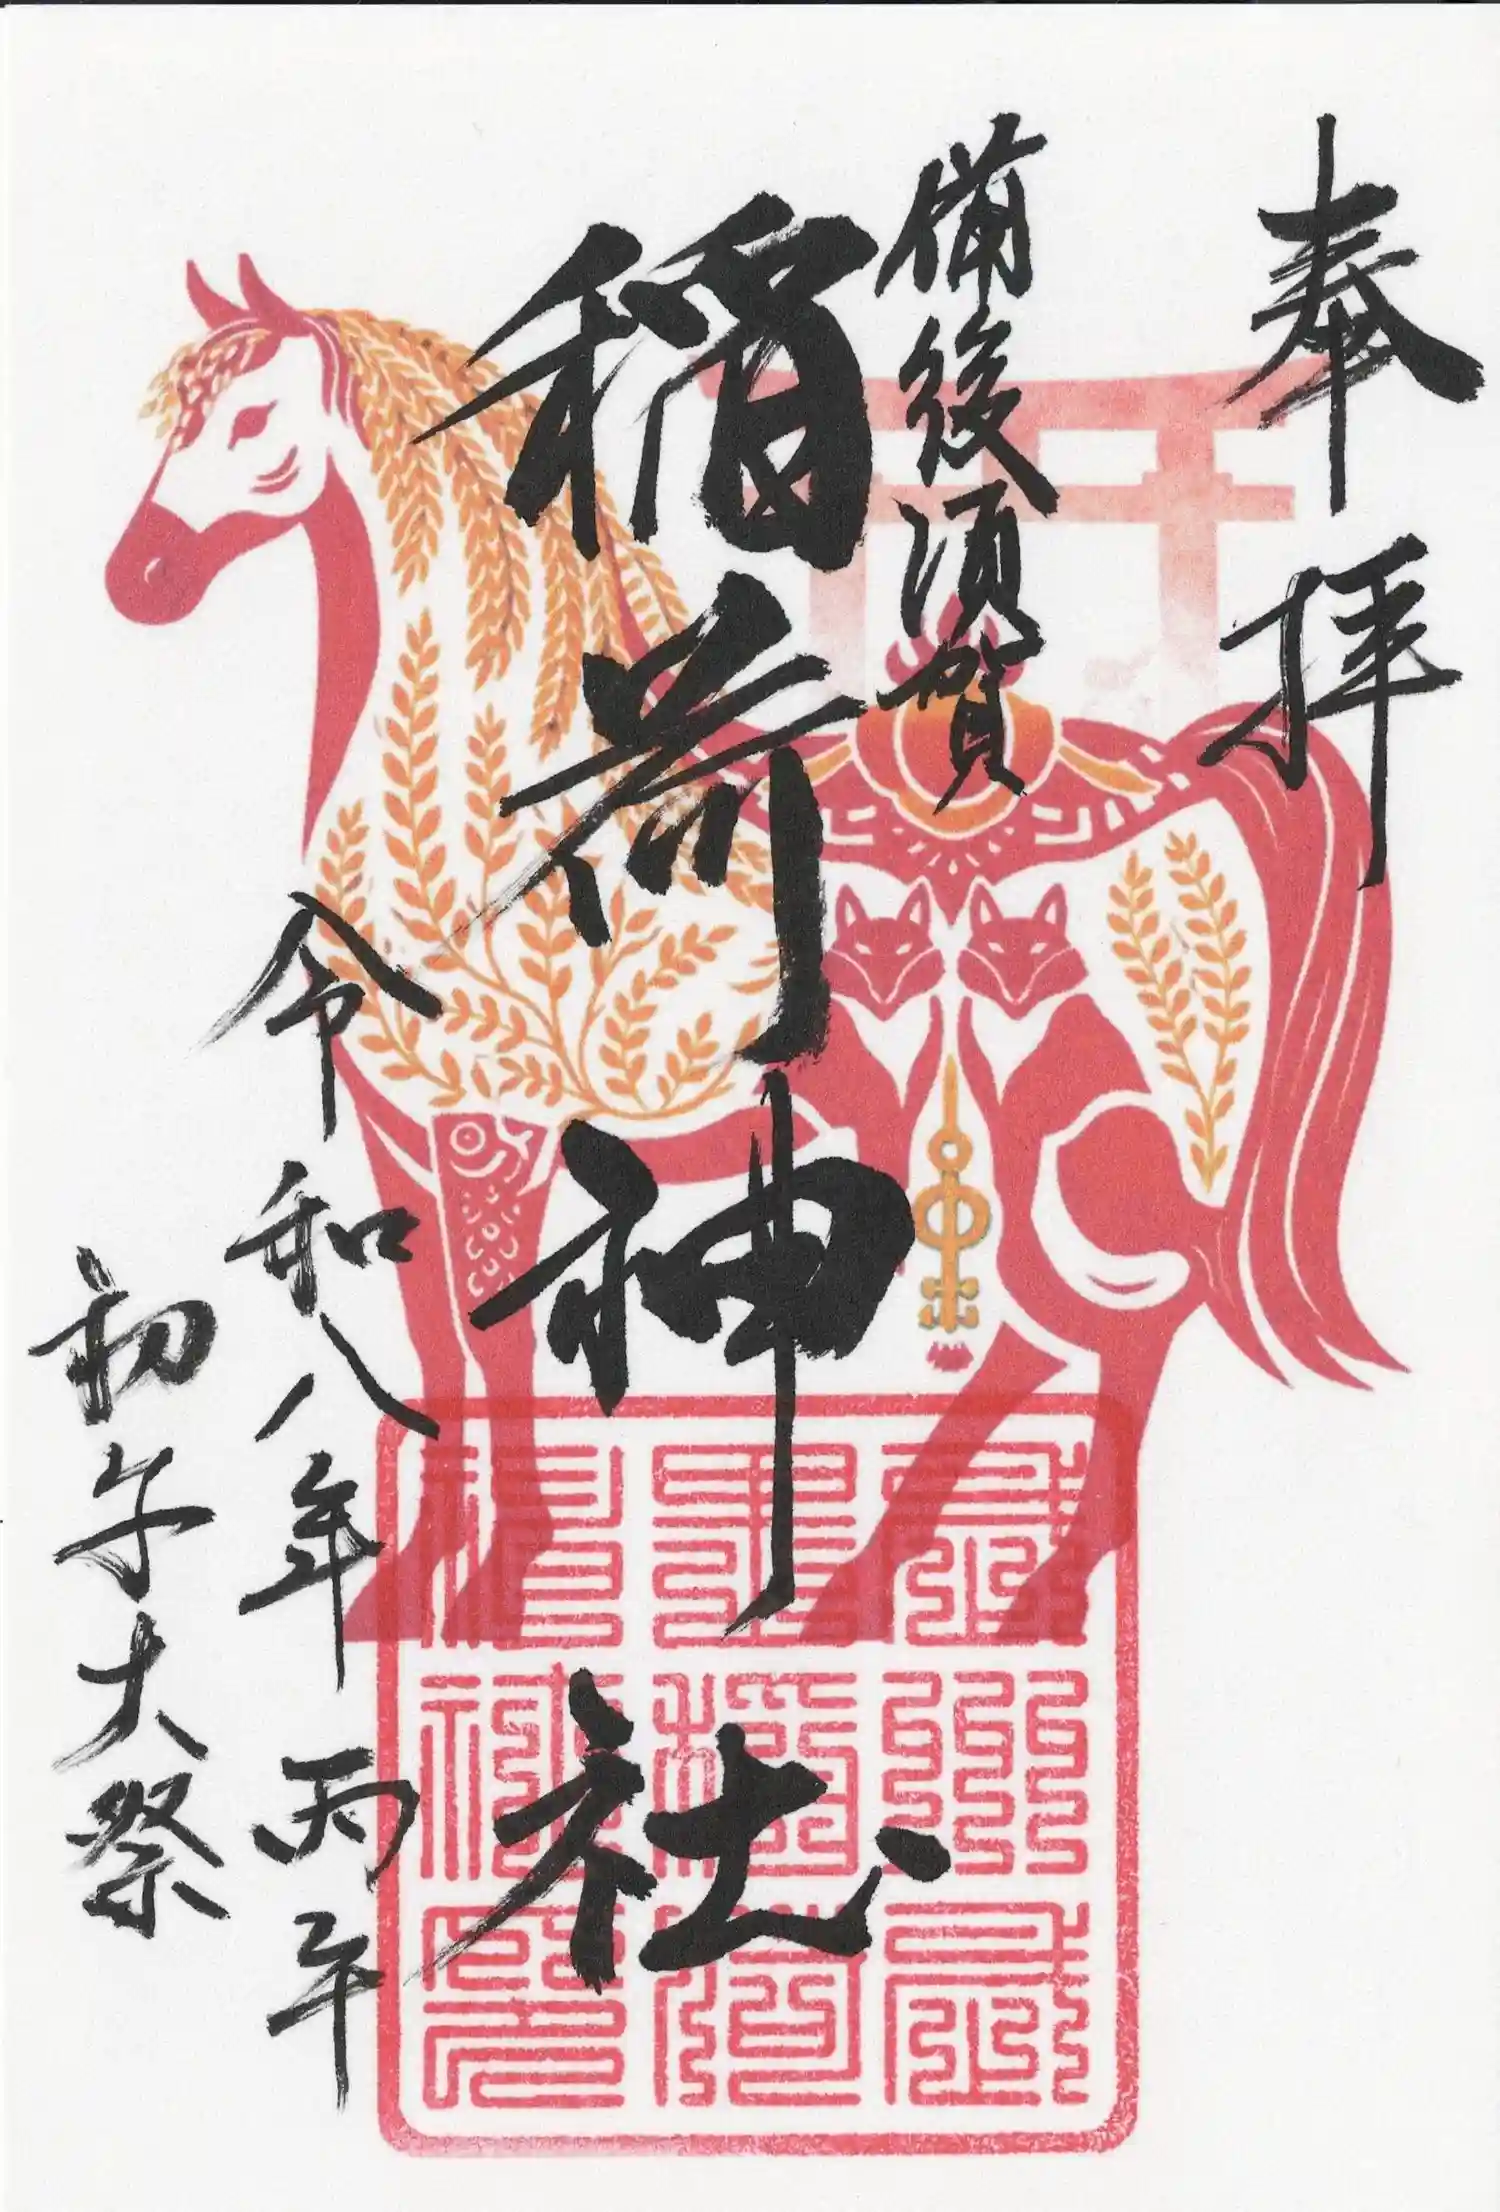 奉拝
備後須賀
稲荷神社
令和八年丙午
初午大祭